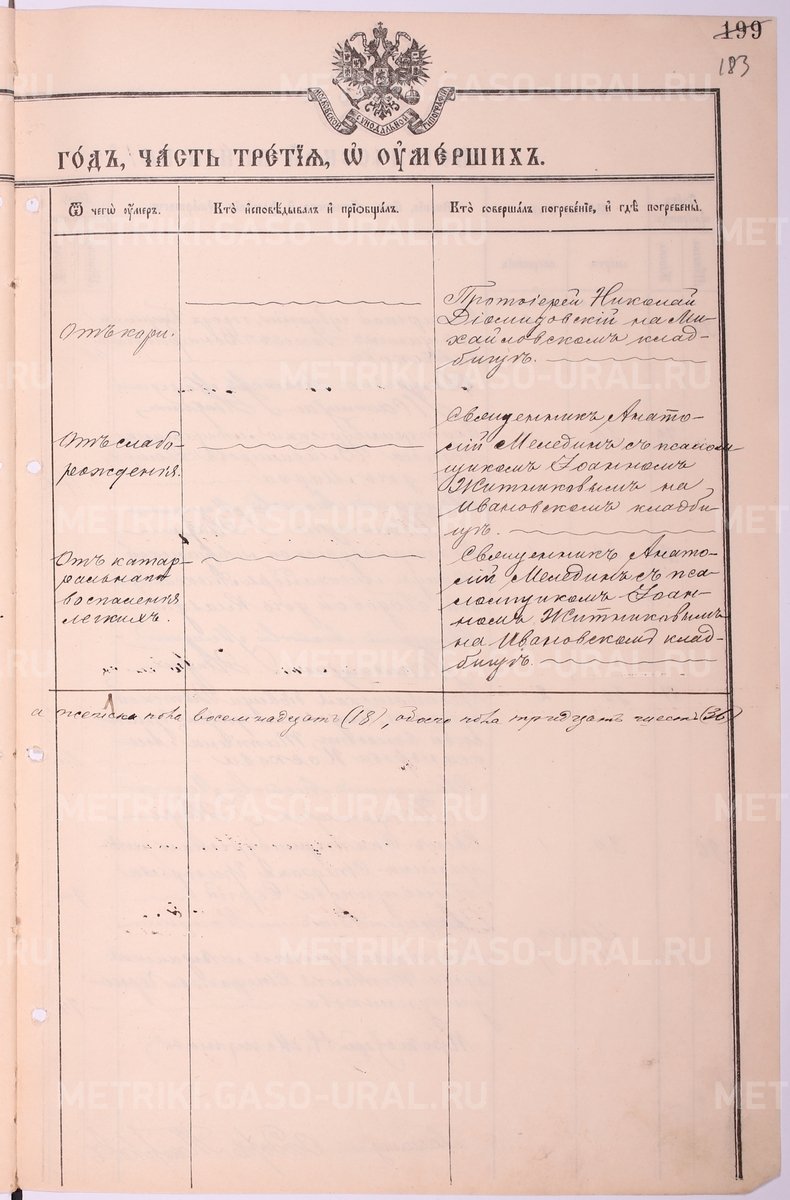 199
183
МОСКОВСКОЙ СѴНОДАЛЬНОЙ ТИПОГРАФІИ
ГО́ДЪ, ЧА́СТЬ ТРЕ́ТІѦ, Ѡ҆ ОУ҆МЕ́РШИХЪ.
Ѿ чегѡ̀ оу҆́меръ.
Кто̀ и҆сповѣ́дывалъ и҆ прїѡбща́лъ.
Кто̀ соверша́лъ погребе́нїе, и҆ гдѣ̀ погребены̀.
Отъ кори.
Протоіерей Николай
Діомидовскій на Ми-
хайловскомъ клад-
бищѣ.
Отъ слабо-
рожденія.
Священникъ Анато-
лій Мелединъ съ псалом-
щикомъ Іоанномъ
Житниковымъ на
Ивановскомъ кладби-
щѣ.
Отъ катар-
ральнаго
воспаленія
легкихъ.
Священникъ Анато-
лій Мелединъ съ пса-
ломщикомъ Іоан-
номъ Житниковымъ
на Ивановскомъ клад-
бищѣ.
а женска пола восемнадцать (18), обоего пола тридцать шесть (36)
METRIKI.GASO-URAL.RU